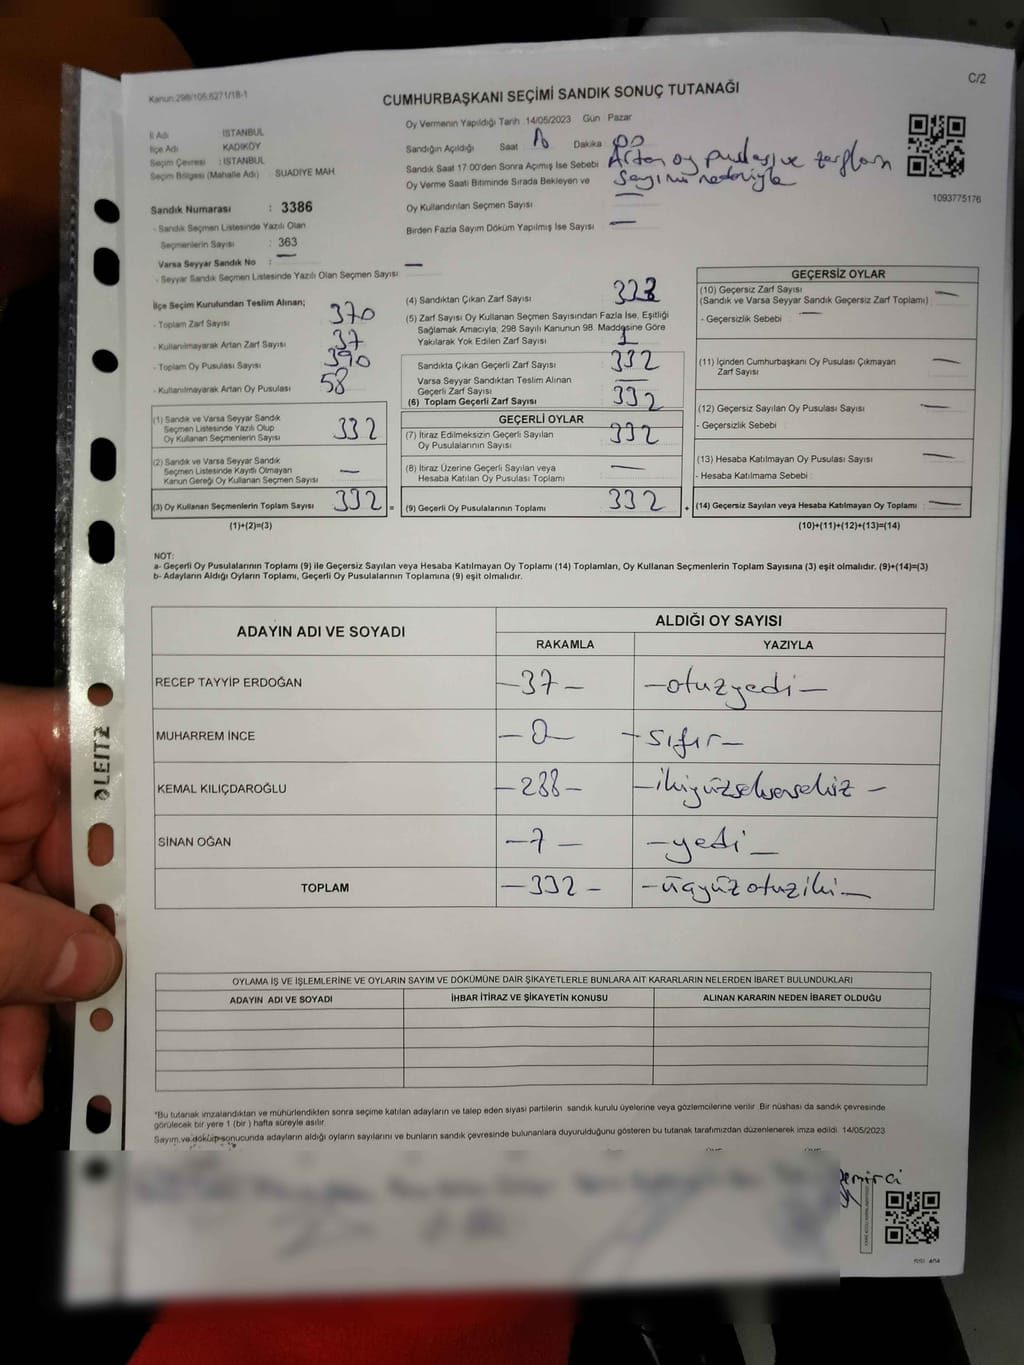 Kanun:298/105;6271/18-1
C/2
CUMHURBAŞKANI SEÇİMİ SANDIK SONUÇ TUTANAĞI
İl Adı : İSTANBUL
İlçe Adı : KADIKÖY
Seçim Çevresi : İSTANBUL
Seçim Bölgesi (Mahalle Adı) SUADİYE MAH.
Sandık Numarası : 3386
- Sandık Seçmen Listesinde Yazılı Olan
Seçmenlerin Sayısı : 363
Varsa Seyyar Sandık No : —
- Seyyar Sandık Seçmen Listesinde Yazılı Olan Seçmen Sayısı —
Oy Vermenin Yapıldığı Tarih :14/05/2023 Gün Pazar
Sandığın Açıldığı Saat Dakika 00
Sandık Saat 17.00'den Sonra Açımış İse Sebebi Artan oy pusulası ve zarfların
Oy Verme Saati Bitiminde Sırada Bekleyen ve sayımı nedeniyle
Oy Kullandırılan Seçmen Sayısı —
Birden Fazla Sayım Döküm Yapılmış İse Sayısı —
1093775176
İlçe Seçim Kurulundan Teslim Alınan;
- Toplam Zarf Sayısı 370
- Kullanılmayarak Artan Zarf Sayısı 37
- Toplam Oy Pusulası Sayısı 390
- Kullanılmayarak Artan Oy Pusulası 58
(1) Sandık ve Varsa Seyyar Sandık
Seçmen Listesinde Yazılı Olup
Oy Kullanan Seçmenlerin Sayısı 332
(2) Sandık ve Varsa Seyyar Sandık
Seçmen Listesinde Kayıtlı Olmayan
Kanun Gereği Oy Kullanan Seçmen Sayısı —
(3) Oy Kullanan Seçmenlerin Toplam Sayısı 332 =
(1)+(2)=(3)
(4) Sandıktan Çıkan Zarf Sayısı 333
(5) Zarf Sayısı Oy Kullanan Seçmen Sayısından Fazla İse, Eşitliği
Sağlamak Amacıyla, 298 Sayılı Kanunun 98. Maddesine Göre
Yakılarak Yok Edilen Zarf Sayısı 1
Sandıkta Çıkan Geçerli Zarf Sayısı 332
Varsa Seyyar Sandıktan Teslim Alınan
Geçerli Zarf Sayısı —
(6) Toplam Geçerli Zarf Sayısı 332
GEÇERLİ OYLAR
(7) İtiraz Edilmeksizin Geçerli Sayılan
Oy Pusulalarının Sayısı 332
(8) İtiraz Üzerine Geçerli Sayılan veya
Hesaba Katılan Oy Pusulası Toplamı —
(9) Geçerli Oy Pusulalarının Toplamı 332 +
GEÇERSİZ OYLAR
(10) Geçersiz Zarf Sayısı —
(Sandık ve Varsa Seyyar Sandık Geçersiz Zarf Toplamı)
- Geçersizlik Sebebi : —
(11) İçinden Cumhurbaşkanı Oy Pusulası Çıkmayan —
Zarf Sayısı
(12) Geçersiz Sayılan Oy Pusulası Sayısı —
- Geçersizlik Sebebi :
(13) Hesaba Katılmayan Oy Pusulası Sayısı —
- Hesaba Katılmama Sebebi :
(14) Geçersiz Sayılan veya Hesaba Katılmayan Oy Toplamı —
(10)+(11)+(12)+(13)=(14)
NOT:
a- Geçerli Oy Pusulalarının Toplamı (9) ile Geçersiz Sayılan veya Hesaba Katılmayan Oy Toplamı (14) Toplamları, Oy Kullanan Seçmenlerin Toplam Sayısına (3) eşit olmalıdır. (9)+(14)=(3)
b- Adayların Aldığı Oyların Toplamı, Geçerli Oy Pusulalarının Toplamına (9) eşit olmalıdır.
ADAYIN ADI VE SOYADI
ALDIĞI OY SAYISI
RAKAMLA YAZIYLA
RECEP TAYYİP ERDOĞAN —37— —otuzyedi—
MUHARREM İNCE —0— —sıfır—
KEMAL KILIÇDAROĞLU —288— —ikiyüzseksensekiz—
SİNAN OĞAN —7— —yedi—
TOPLAM —332— —üçyüzotuziki—
OYLAMA İŞ VE İŞLEMLERİNE VE OYLARIN SAYIM VE DÖKÜMÜNE DAİR ŞİKAYETLERLE BUNLARA AİT KARARLARIN NELERDEN İBARET BULUNDUKLARI
ADAYIN ADI VE SOYADI İHBAR İTİRAZ VE ŞİKAYETİN KONUSU ALINAN KARARIN NEDEN İBARET OLDUĞU
*Bu tutanak imzalandıktan ve mühürlendikten sonra seçime katılan adayların ve talep eden siyasi partilerin sandık kurulu üyelerine veya gözlemcilerine verilir. Bir nüshası da sandık çevresinde
görülecek bir yere 1 (bir) hafta süreyle asılır.
Sayım ve döküm sonucunda adayların aldığı oyların sayılarını ve bunların sandık çevresinde bulunanlara duyurulduğunu gösteren bu tutanak tarafımızdan düzenlenerek imza edildi. 14/05/2023
LEITZ